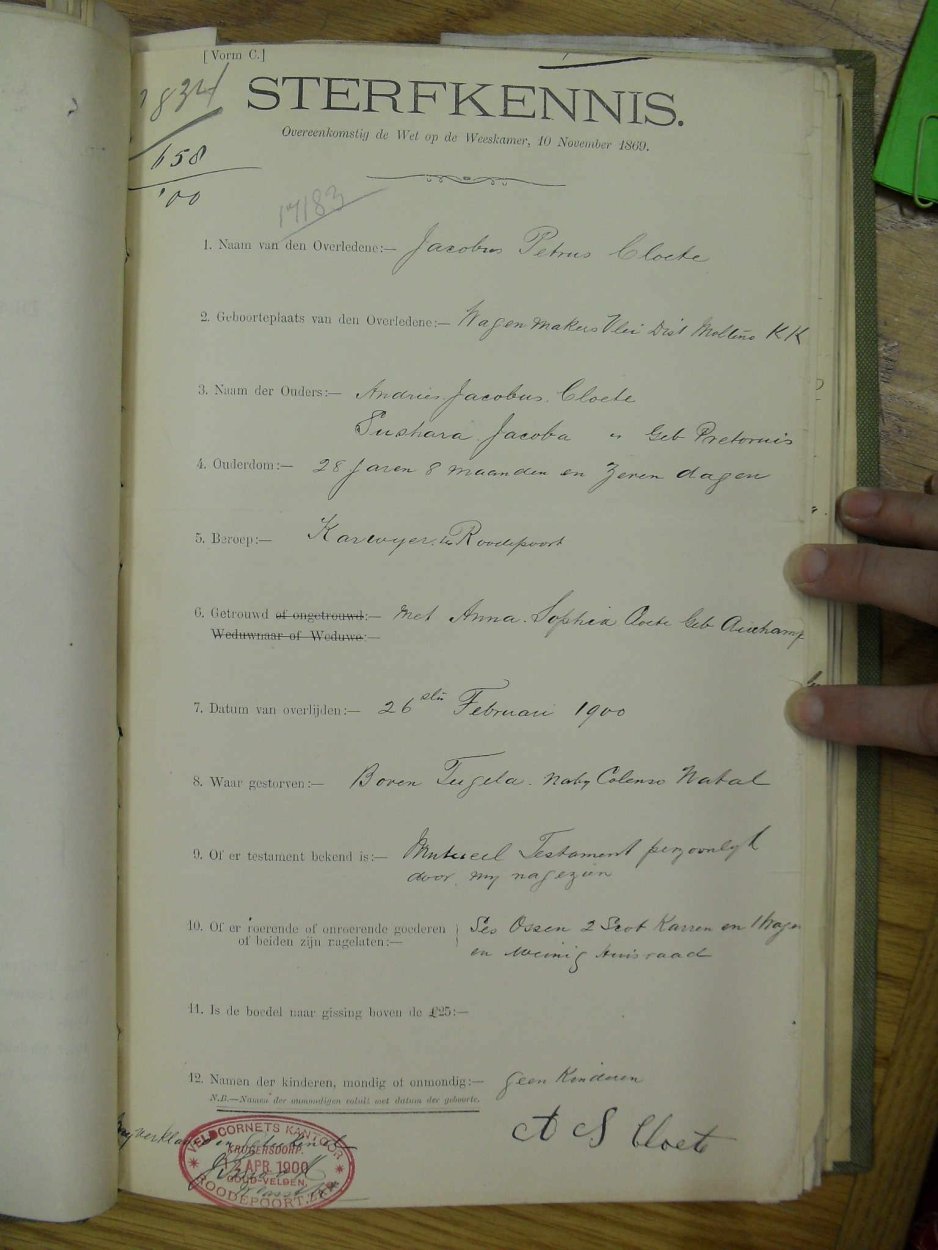 [Vorm C.]
834
STERFKENNIS.
Overeenkomstig de Wet op de Weeskamer, 10 November 1869.
658
'00
17183
1. Naam van den Overledene:— Jacobus Petrus Cloete
2. Geboorteplaats van den Overledene:— Wagenmakers Vlei Dist Molteno KK
3. Naam der Ouders:— Andries Jacobus Cloete
Jacoba " Geb Pretorius
4. Ouderdom:— 28 Jaren 8 maanden en Zeven dagen
5. Beroep:— Karweyer te Roodepoort
6. Getrouwd of ongetrouwd:— Met Anna Sophia Cloete Geb
Weduwnaar of Weduwe:—
7. Datum van overlijden:— 26sten Februari 1900
8. Waar gestorven:— Boven Tugela naby Colenso Natal
9. Of er testament bekend is:— Mutueel Testament persoonlyk
door my nagezien
10. Of er roerende of onroerende goederen } Ses Ossen 2 Scot Karren en 1 Wagen
of beiden zijn nagelaten:— en weinig Huisraad
11. Is de boedel naar gissing boven de £25:—
12. Namen der kinderen, mondig of onmondig:— geen Kinderen
N.B.—Namen der onmondigen voluit met datum der geboorte.
A S Cloete
VELDCORNETS KANTOOR
KRUGERSDORP.
2 APR. 1900
GOUD-VELDEN.
ROODEPOORT, ZAR